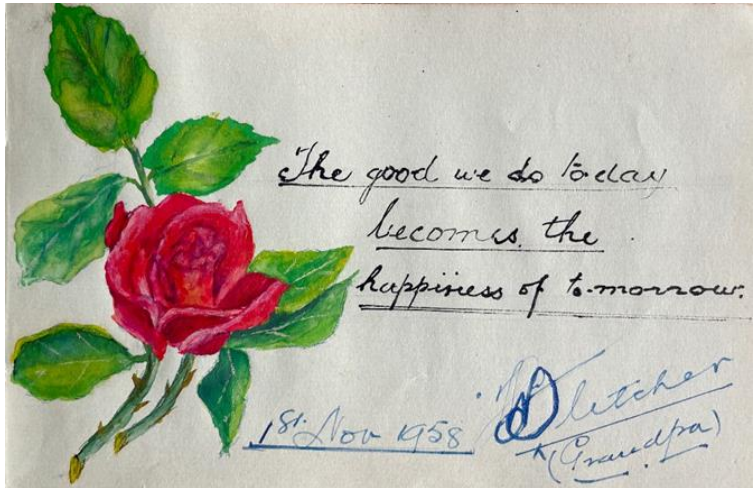 The good we do to-day
becomes the
happiness of to-morrow.
1st. Nov 1958
Fletcher
(Grandpa)